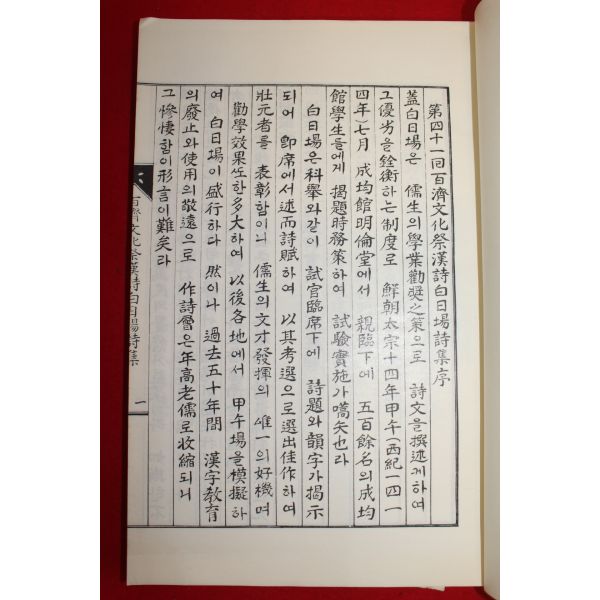 第四十一回百濟文化祭漢詩白日場詩集序
蓋白日場은 儒生의學業勸奬之策으로 詩文을撰述케하여
그優劣을銓衡하는制度로 鮮朝太宗十四年甲午(西紀一四一
四年)七月 成均館明倫堂에서 親臨下에 五百餘名의成均
館學生들에게 揭題時務策하여 試驗實施가嚆矢也라
白日場은科擧와같이 試官臨席下에 詩題와韻字가揭示
되어 卽席에서述而詩賦하여 以其考選으로選出佳作하여
壯元者를 表彰함이니 儒生의文才發揮의 唯一의好機며
勸學效果또한多大하여 以後各地에서 甲午場을模擬하
여 白日場이盛行하다 然이나 過去五十年間 漢字敎育
의廢止와使用의敬遠으로 作詩層은年高老儒로收縮되니
그慘悽함이形言이難矣라
百濟文化祭漢詩白日場詩集
一